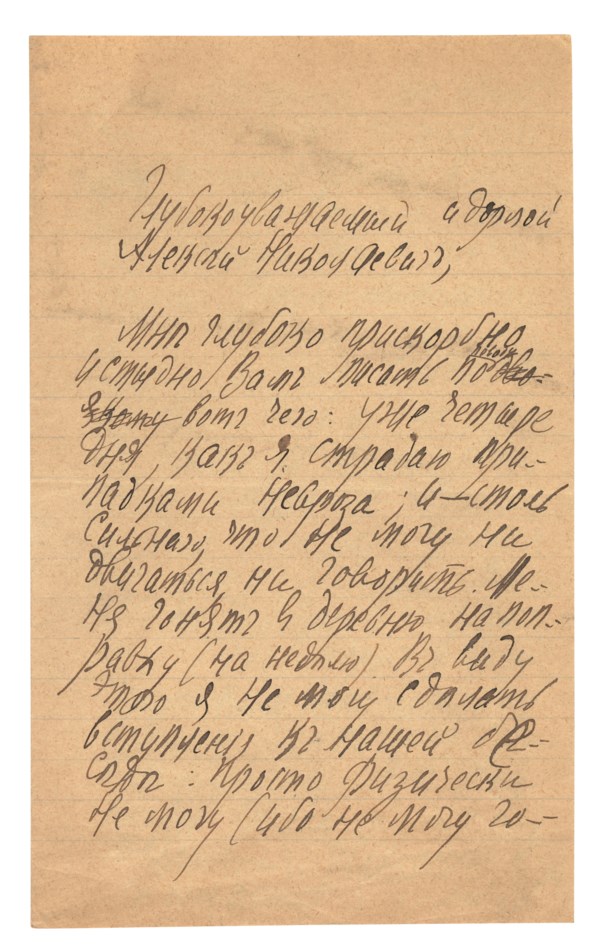 Глубокоуважаемый и дорогой
Алексѣй Николаевичъ,
Мнѣ глубоко прискорбно
и стыдно Вамъ писать по
вотъ чего: уже четыре
дня, какъ я страдаю при-
падками невроза; и – столь
сильнаго, что не могу ни
двигаться, ни говорить. Ме-
ня гонятъ въ деревню на поп-
равку (на недѣлю). Въ виду
этого я не могу сдѣлать
вступленія къ нашей бе-
сѣдѣ: просто физически
не могу (ибо не могу го-